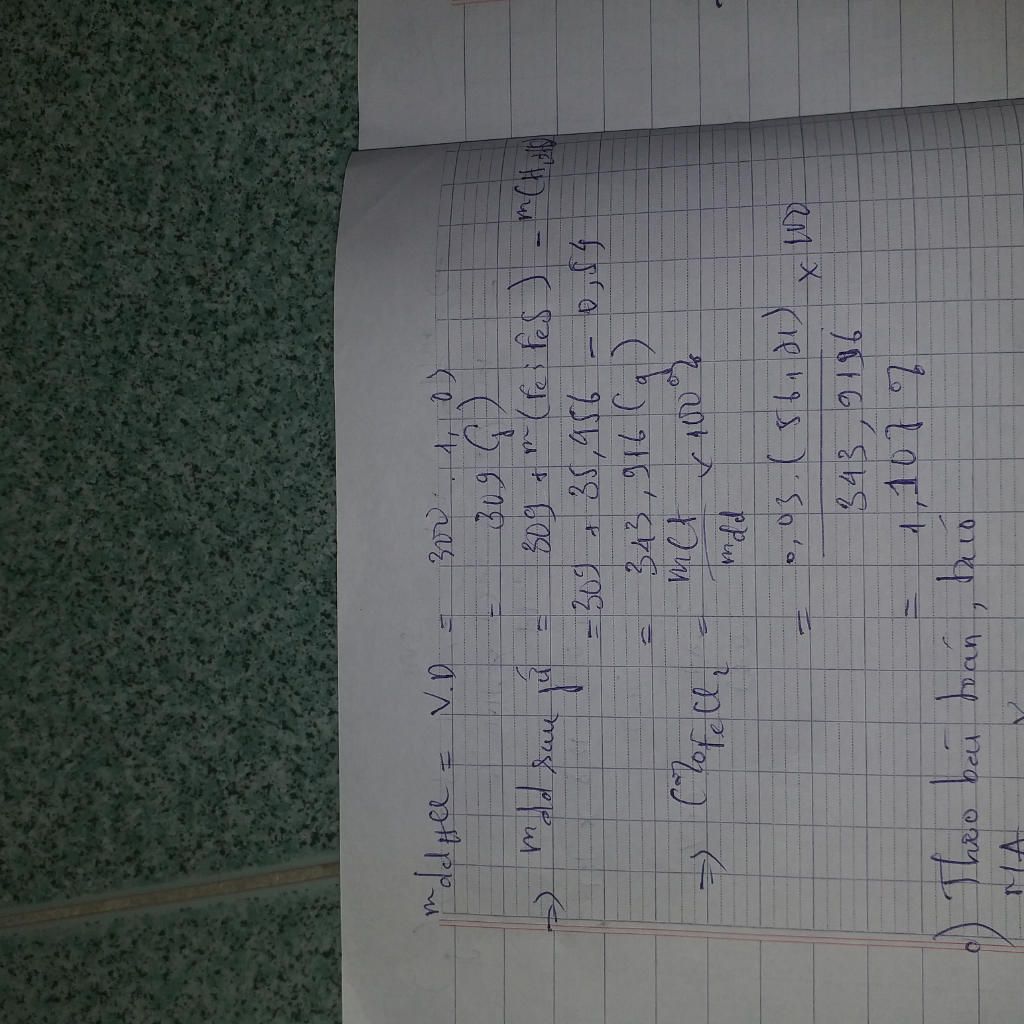 mddHCl = V.D = 300 . 1,03
= 309 (g)
=> mdd sau pứ = 309 + m(Fe; FeS) - m(H2,
= 309 + 35,456 - 0,54
= 343,916 (g)
=> C%FeCl2 = mCt / mdd x 100%
= 0,03.(56+71) / 343,9196 x 100
= 1,107 %
c) Theo bài toán, bảo